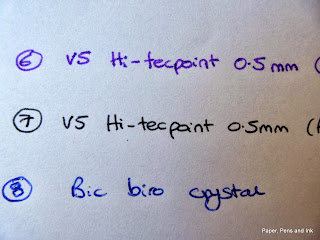 ⑥ V5 Hi-tecpoint 0.5mm (
⑦ V5 Hi-tecpoint 0.5mm (
⑧ Bic biro crystal
Paper, Pens and Ink